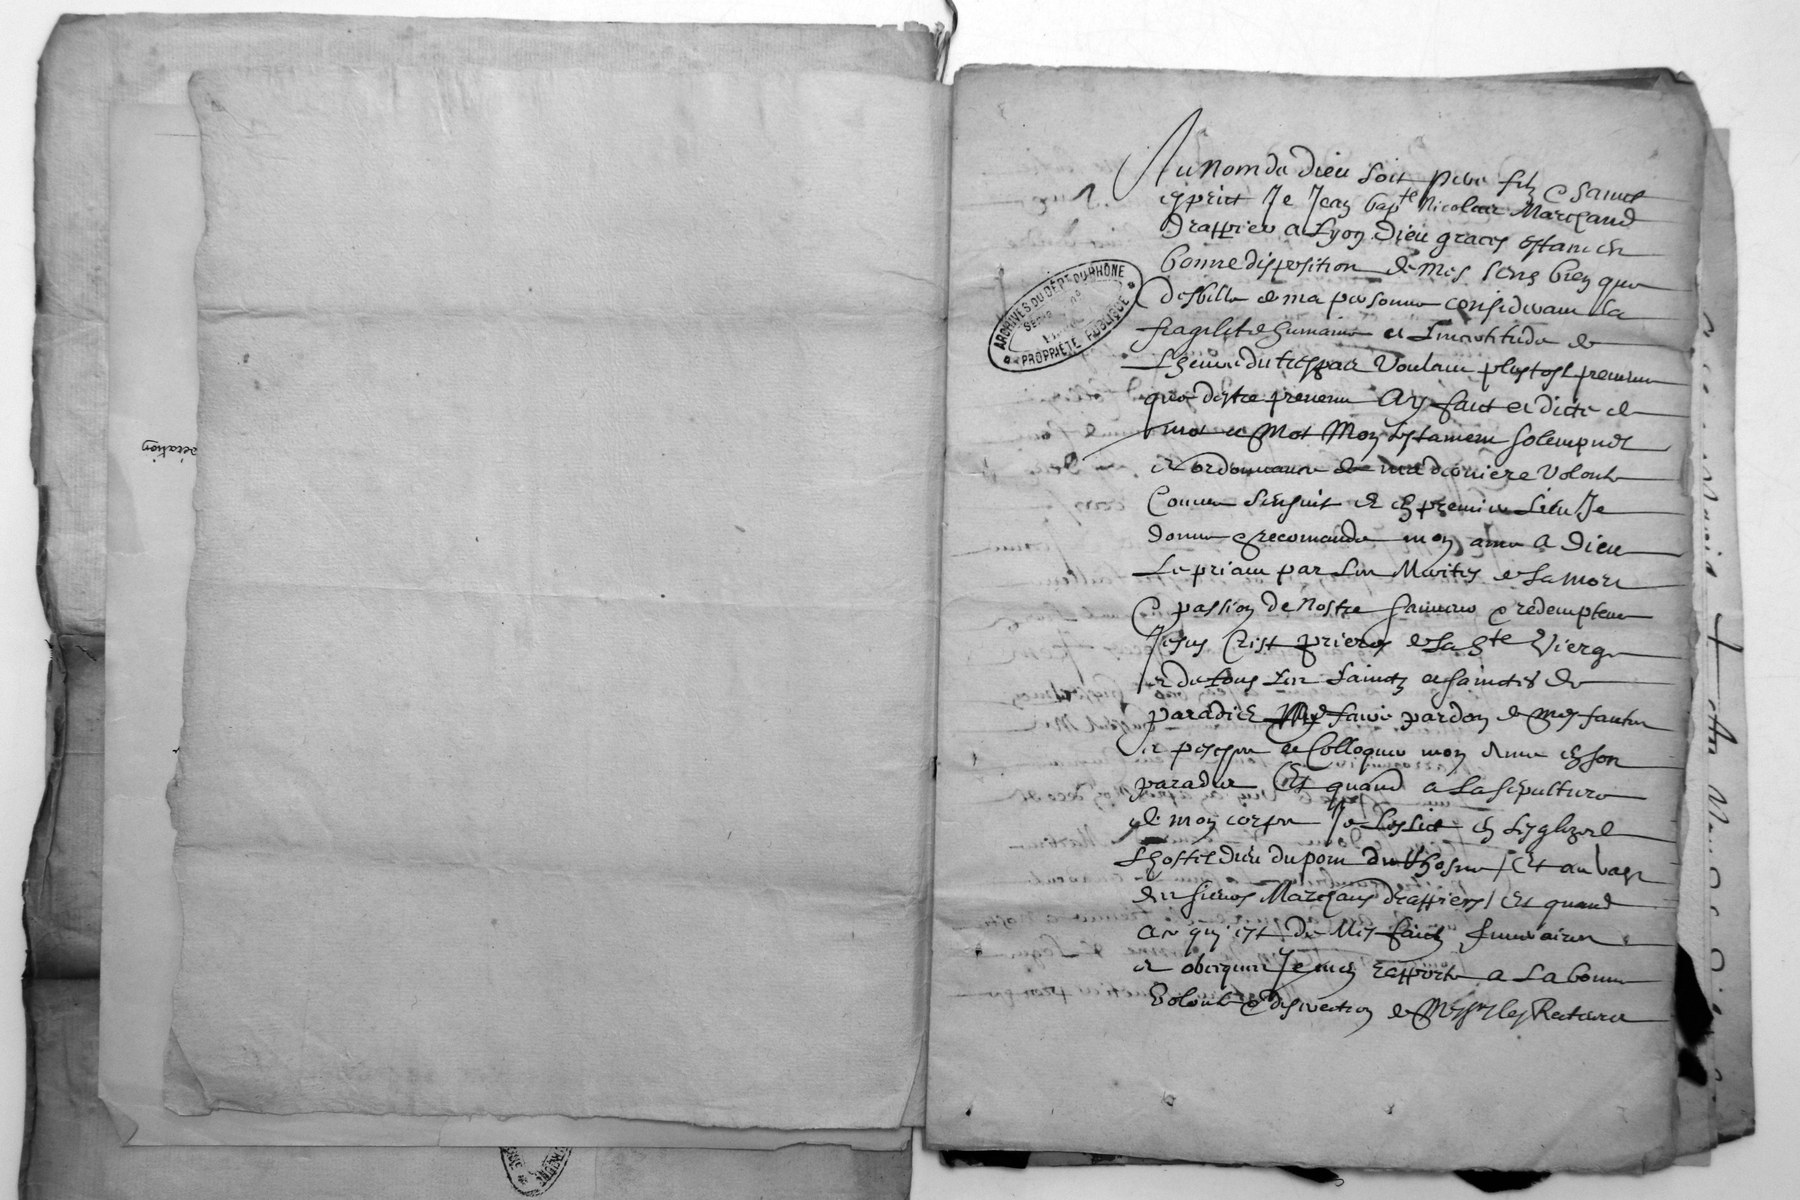 Au nom de Dieu soit pere filz & sainct
esprict Je Jean bapte Nicolas Marchand
drappier a Lyon Dieu graces estant en
bonne disposition de mes sens bien que
desbille de ma personne considerant la
fragilité humaine et lincertitude de
Lheure du trespas Voulant plustost prevenir
que destre prevenu Ay fait et dicté de
mot a Mot Mon testament solempnel
et ordonnance de ma derniere Volonté
Comme sensuit et en premier Lieu Je
donne & recomande mon ame a Dieu
Le priant par les Merites de la mort
& passion de nostre sauveur & redempteur
Jesus Crist prieres de la Ste Vierge
et de tous les saincts et sainctes de
paradis me faire pardon de mes fautes
et colloquer mon ame en son
paradis Et quand a la sepulture
de mon corps Je Leslict en Leglize de
Lhostel dieu du pont du Rhosne / Et au vase
des sieurs Marchans drappiers / Et quand
a ce qui est de Mes funerairer
et obseques Je men rapporte a La bonne
Volonté & discretion de Messrs les Recteurs
ARCHIVES DU DÉPT DU RHÔNE
PROPRIÉTÉ PUBLIQUE